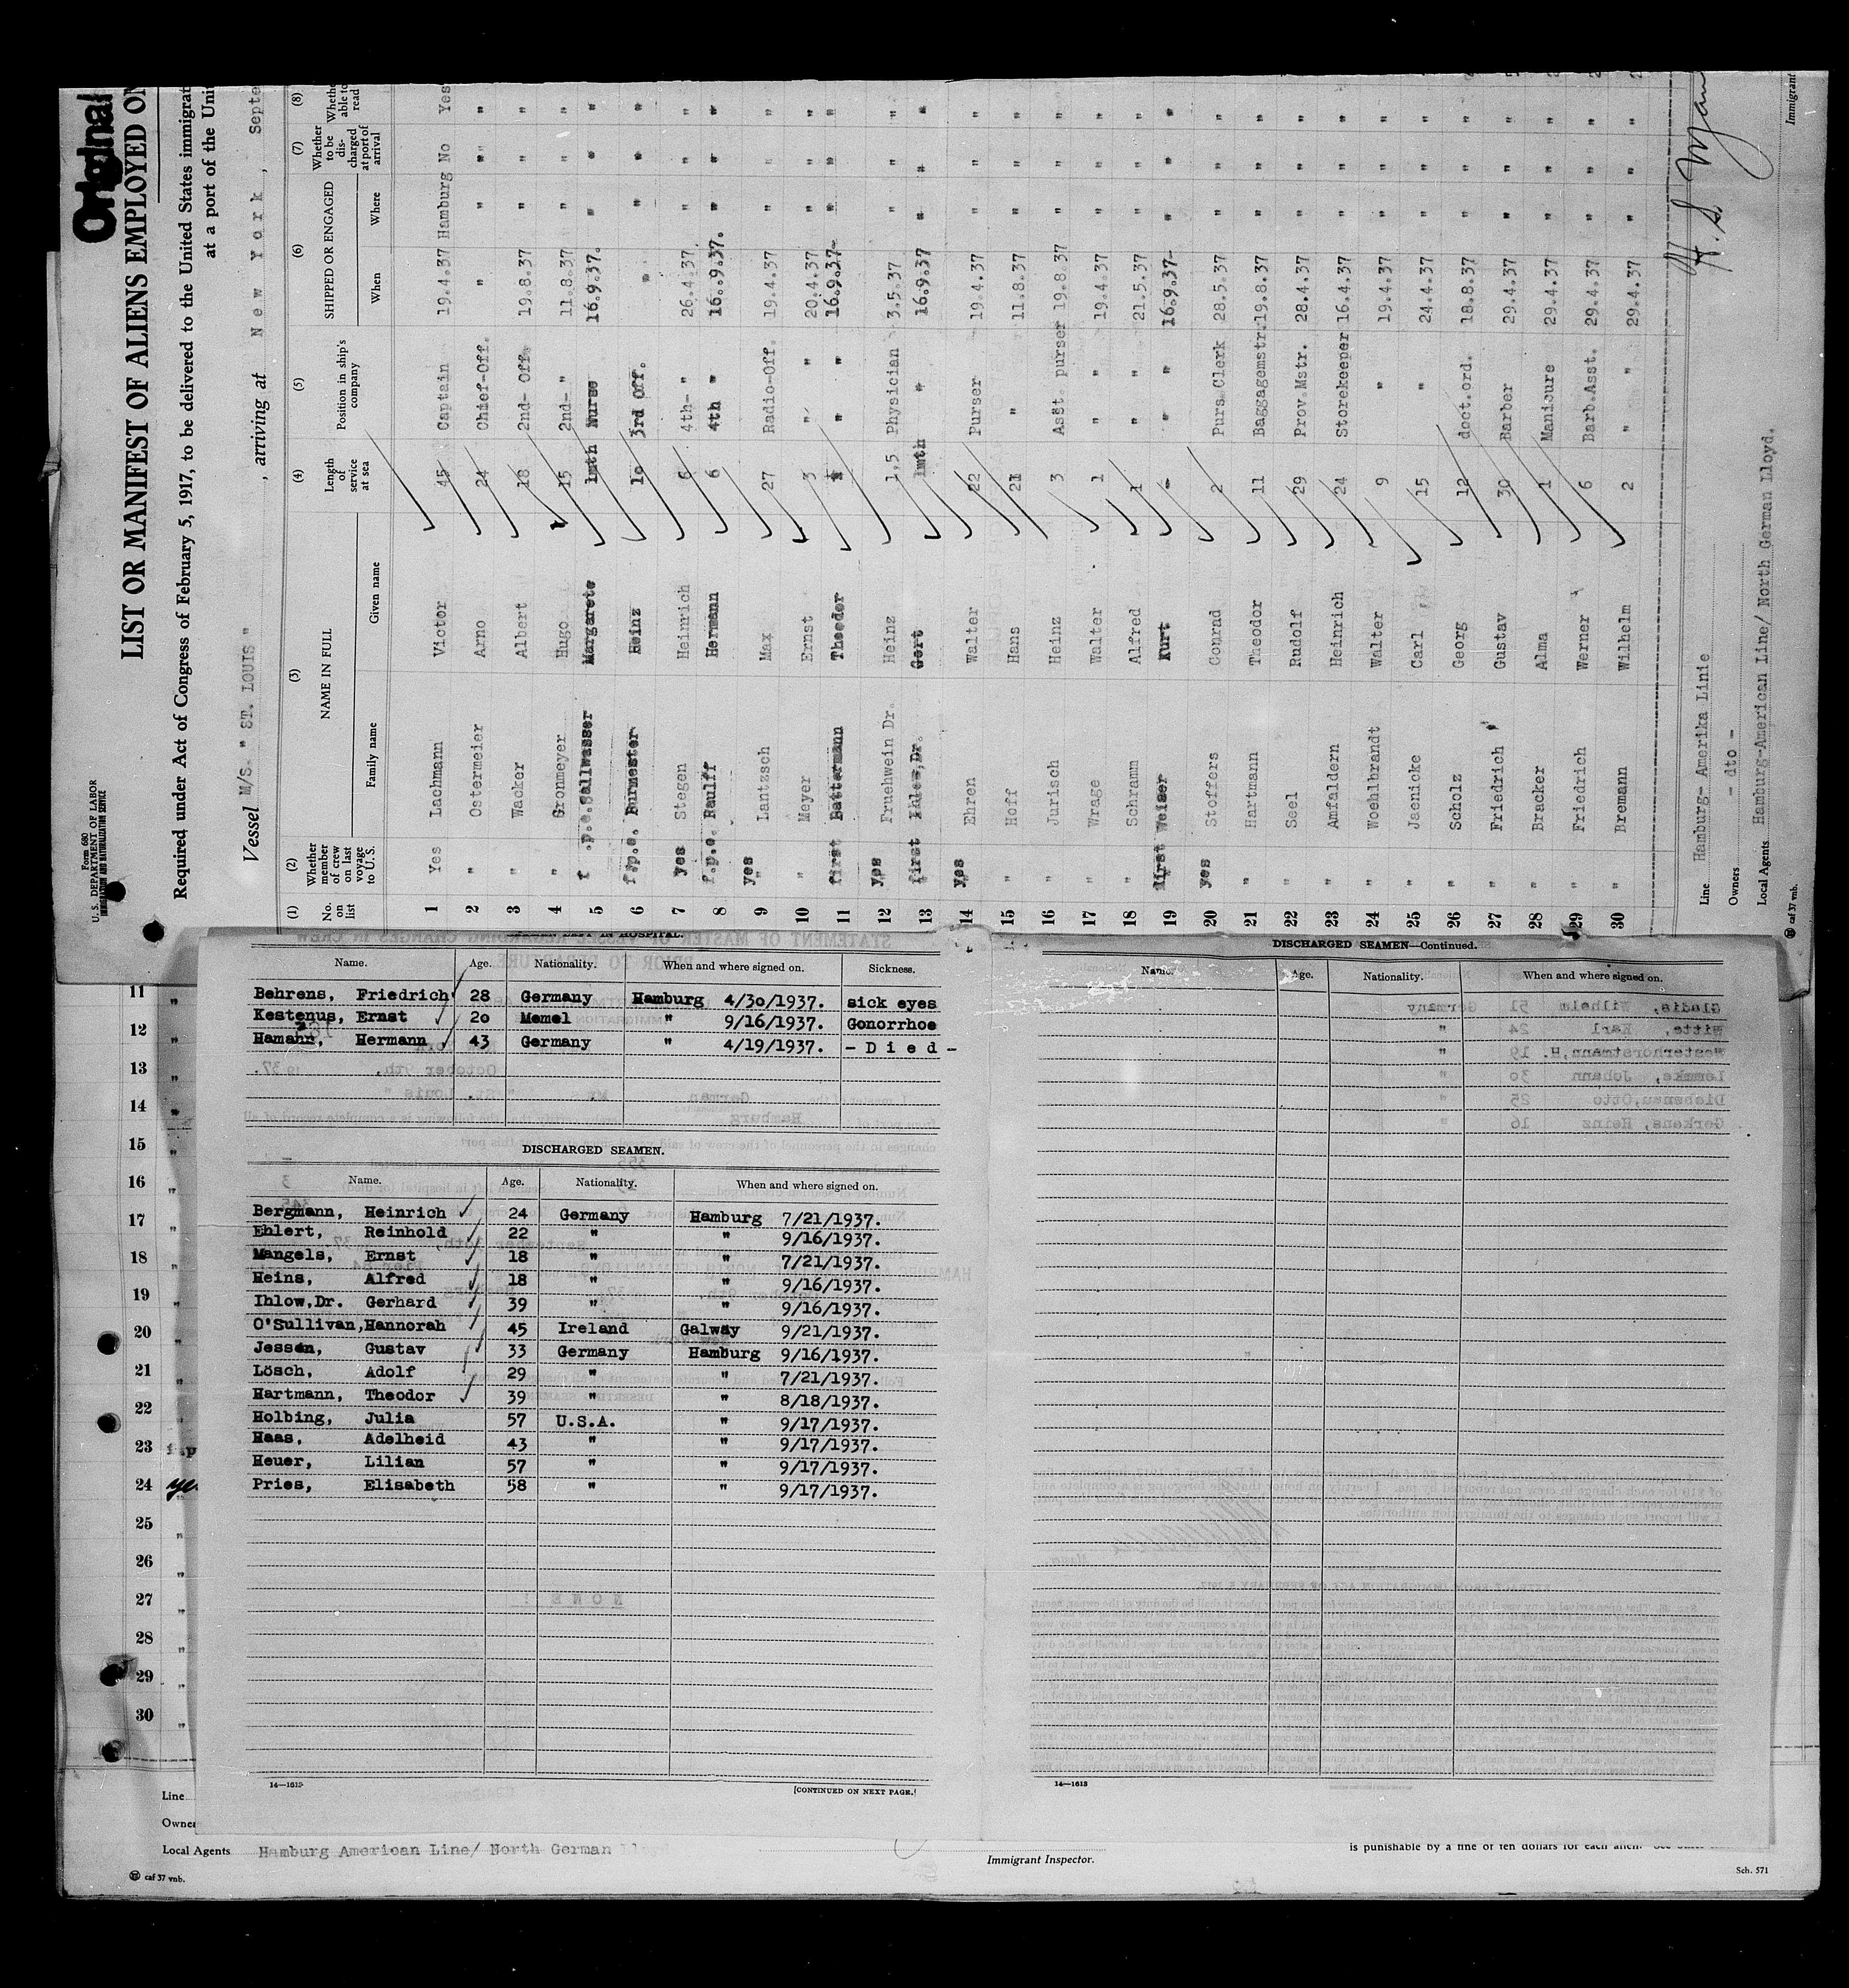 Original
Form 680
U. S. DEPARTMENT OF LABOR
IMMIGRATION AND NATURALIZATION SERVICE
LIST OR MANIFEST OF ALIENS EMPLOYED ON
Required under Act of Congress of February 5, 1917, to be delivered to the United States immigrat
at a port of the Unit
Vessel M/S. " ST. LOUIS " , arriving at New York , Septe
(1) (2) (3) (4) (5) (6) (7) (8)
No. on list
Whether member of crew on last voyage to U. S.
NAME IN FULL
Family name Given name
Length of service at sea
Position in ship's company
SHIPPED OR ENGAGED
When Where
Whether to be discharged at port of arrival
Whether able to read
1 Yes Lachmann Victor 45 Captain 19.4.37 Hamburg No Yes
2 " Ostermeier Arno 24 Chief-Off. " " " "
3 " Wacker Albert 18 2nd- Off. 19.8.37 " " "
4 " Gronmeyer Hugo 15 2nd- " 11.8.37 " " "
5 f.p.e. Sallwasser Margarete 1mth Nurse 16.9.37. " " "
6 f.p.e. Burmester Heinz 10 3rd Off. " " " "
7 yes Stegen Heinrich 6 4th- " 26.4.37 " " "
8 f.p.e. Raulff Hermann 6 4th " 16.9.37. " " "
9 yes Lantzsch Max 27 Radio-Off. 19.4.37 " " "
10 " Meyer Ernst 3 " " 20.4.37 " " "
11 first Battermann Theodor " " 16.9.37- " " "
12 yes Fruehwein Dr. Heinz 1,5 Physician 3.5.37 " " "
13 first Ihlow,Dr. Gert 1mth " 16.9.37 " " "
14 yes Ehren Walter 22 Purser 19.4.37 " " "
15 " Hoff Hans 21 " 11.8.37 " " "
16 " Jurisch Heinz 3 Asst. purser 19.8.37 " " "
17 " Wrage Walter 1 " " 19.4.37 " " "
18 " Schramm Alfred 1 " " 21.5.37 " " "
19 first Weiser Kurt - " " 16.9.37- " " "
20 yes Stoffers Conrad 2 Purs.Clerk 28.5.37 " " "
21 " Hartmann Theodor 11 Baggagemstr. 19.8.37 " " "
22 " Seel Rudolf 29 Prov.Mstr. 28.4.37 " " "
23 " Amfaldern Heinrich 24 Storekeeper 16.4.37 " " "
24 " Woehlbrandt Walter 9 " 19.4.37 " " "
25 " Jaenicke Carl 15 " 24.4.37 " " "
26 " Scholz Georg 12 doct.ord. 18.8.37 " " "
27 " Friedrich Gustav 30 Barber 29.4.37 " " "
28 " Bracker Alma 1 Manicure 29.4.37 " " "
29 " Friedrich Werner 6 Barb.Asst. 29.4.37 " " "
30 " Bremann Wilhelm 2 " " 29.4.37 " " "
Line Hamburg- Amerika Linie
Owners - dto -
Local Agents Hamburg-American Line/ North German Lloyd.
caf 37 vnb.
Immigrant
Name. Age. Nationality. When and where signed on. Sickness.
Behrens, Friedrich 28 Germany Hamburg 4/30/1937. sick eyes
Kestenus, Ernst 20 Memel " 9/16/1937. Gonorrhoe
Hamann, Hermann 43 Germany " 4/19/1937. - D i e d -
DISCHARGED SEAMEN.
Name. Age. Nationality. When and where signed on.
Bergmann, Heinrich 24 Germany Hamburg 7/21/1937.
Ehlert, Reinhold 22 " " 9/16/1937.
Mangels, Ernst 18 " " 7/21/1937.
Heins, Alfred 18 " " 9/16/1937.
Ihlow,Dr. Gerhard 39 " " 9/16/1937.
O'Sullivan,Hannorah 45 Ireland Galway 9/21/1937.
Jessen, Gustav 33 Germany Hamburg 9/16/1937.
Lösch, Adolf 29 " " 7/21/1937.
Hartmann, Theodor 39 " " 8/18/1937.
Holbing, Julia 57 U.S.A. " 9/17/1937.
Haas, Adelheid 43 " " 9/17/1937.
Heuer, Lilian 57 " " 9/17/1937.
Pries, Elisabeth 58 " " 9/17/1937.
14—1613
[CONTINUED ON NEXT PAGE.]
DISCHARGED SEAMEN—Continued.
Name. Age. Nationality. When and where signed on.
14—1613
11 "
12 "
13 "
14 "
15 "
16 "
17 "
18 "
19 "
20 "
21 "
22 "
23
24
25 "
26 "
27 "
28 "
29 "
30 "
Line
Owner
Local Agents Hamburg American Line/ North German Lloyd
caf 37 vnb.
Immigrant Inspector.
is punishable by a fine of ten dollars for each alien.
Sch. 571